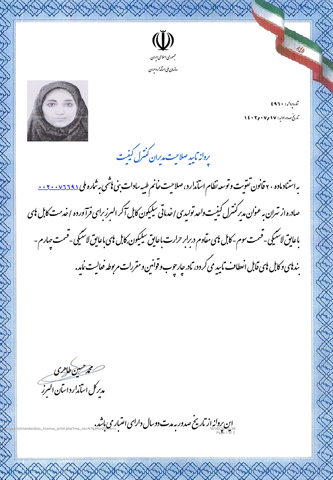 جمهوری اسلامی ایران
سازمان ملی استاندارد ایران
شماره پروانه: ۴۹۱۰
تاریخ صدور پروانه: ۱۴۰۲/۰۷/۱۷
پروانه تایید صلاحیت مدیران کنترل کیفیت
به استناد ماده ۲۰ قانون تقویت و توسعه نظام استاندارد، صلاحیت خانم طیبه سادات بنی هاشمی به شماره ملی ۰۰۲۰۰۷۶۶۹۱
صادره از تهران به عنوان مدیر کنترل کیفیت واحد تولیدی / خدماتی سیلیکون کابل آگر البرز برای فرآورده / خدمت کابل های
با عایق لاستیکی - قسمت سوم - کابل های مقاوم در برابر حرارت با عایق سیلیکون کابل های با عایق لاستیکی - قسمت چهارم -
بندهای و کابل های قابل انعطاف تایید می گردد، تا در چارچوب و قوانین و مقررات مربوطه فعالیت نماید.
محمد حسین طاهری
مدیر کل استاندارد استان البرز
این پروانه از تاریخ صدور به مدت دو سال دارای اعتبار می باشد.